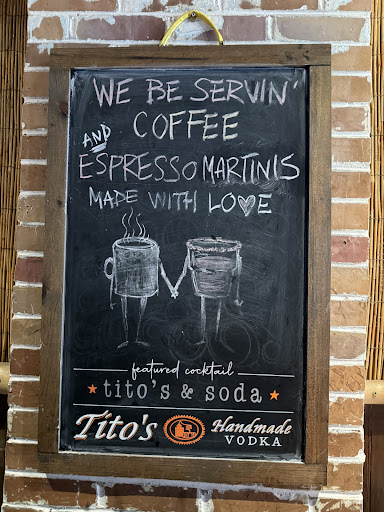 WE BE SERVIN'
COFFEE
AND
ESPRESSO MARTINIS
MADE WITH LOVE
featured cocktail
tito's & soda
Tito's Handmade
VODKA